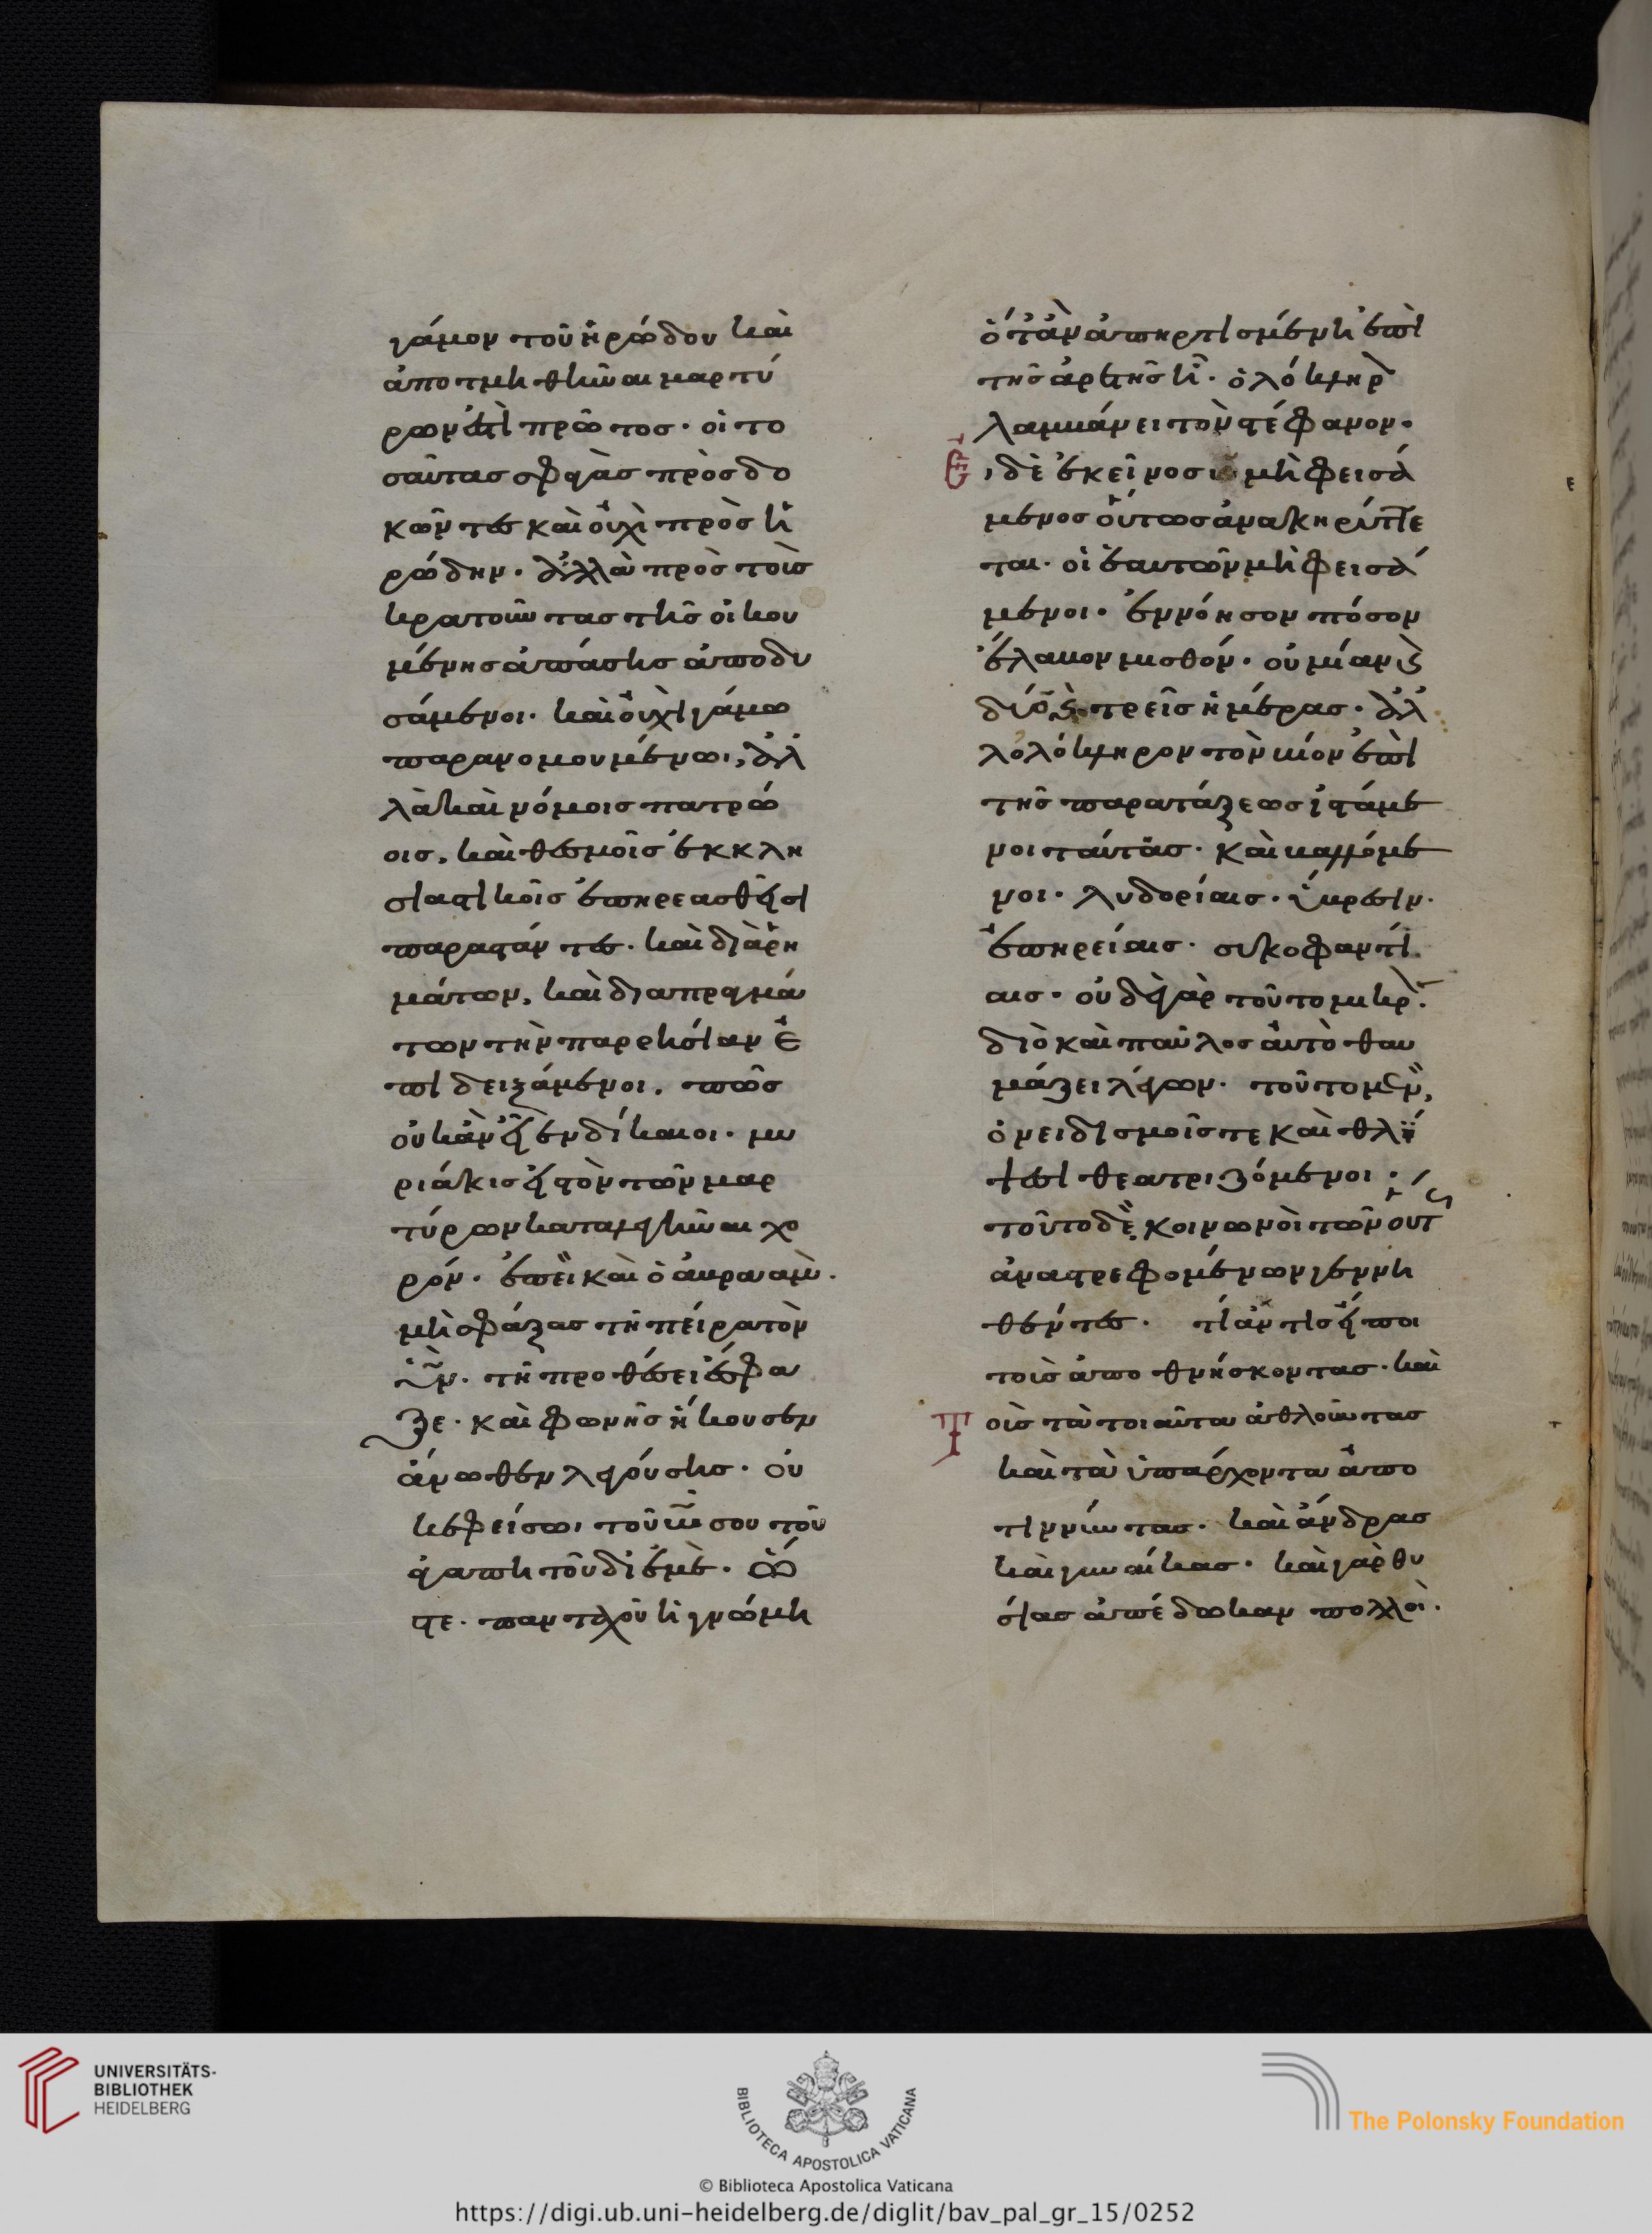 γάμον τοῦ ἡρώδου καὶ
ἀποτμηθῆναι μαρτύ
ρων ἐστὶ πρῶτος· οἱ το
σαύτας σφαγὰς προσδο
κῶντες καὶ οὐχὶ πρὸς ἡ
ρώδην· ἀλλὰ πρὸς τοὺς
κρατοῦντας τῆς οἰκου
μένης ἁπάσης ἀποδυ
σάμενοι· καὶ οὐχὶ γάμω
παρανομουμένωι, ἀλ
λὰ καὶ νόμοις πατρώ
οις, καὶ θεσμοῖς ἐκκλη
σιαστικοῖς ἐπηρεασθεῖσι
παραστάντες· καὶ διὰ ῥη
μάτων, καὶ διὰ πραγμά
των τὴν παρρησίαν ἐ
πιδειξάμενοι, πῶς
οὐκ ἂν εἶεν δίκαιοι· μυ
ριάκις εἰς τὸν τῶν μαρ
τύρων καταλεγῆναι χο
ρόν· ἐπεὶ καὶ ὁ ἀβραὰμ.
μὴ σφάξας τῆ πείρα τὸν
υἱὸν· τῆ προθέσει ἔσφα
ξε· καὶ φωνῆς ἤκουσεν
ἄνωθεν λεγούσης· οὐ
κ ἐφείσω, τοῦ υἱοῦ σου τοῦ
ἀγαπητοῦ δι' ἐμὲ· ὥ
στε· πανταχοῦ ἡ γνώμη
ὅταν ἀπηρτισμένη ἐπὶ
τῆς ἀρετῆς ἦ· ὁλόκληρον
λαμβάνει τὸν στέφανον·
Εἰ δὲ ἐκεῖνος υἱοῦ μὴ φεισά
μενος οὕτως ἀνακηρύττε
ται· οἱ ἑαυτῶν μὴ φεισά
μενοι· ἐννόησον πόσον
ἔλαβον μισθόν· οὐ μίαν καὶ
δύο καὶ τρεῖς ἡμέρας· ἀλ
λ' ὁλόκληρον τὸν βίον ἐπὶ
τῆς παρατάξεως ἱστάμε
νοι ταύτης· καὶ βαλλόμε
νοι· λυδορίαις· ὕβρεσιν·
ἐπηρείαις· συκοφαντί
αις· οὐδὲ γὰρ τοῦτο μικρόν.
διὸ καὶ παῦλος αὐτὸ θαυ
μάζει λέγων· τοῦτο μὲν,
ὀνειδισμοῖς τε καὶ θλί
ψεσι θεατριζόμενοι·
τοῦτο δὲ, κοινωνοὶ τῶν οὕτως
ἀναστρεφομένων γεννη
θέντες· τί ἄν τις εἴποι
τοὺς ἀποθνήσκοντας· καὶ
Τοὺς τὰ τοιαῦτα ἀθλοῦντας
καὶ τὰ ὑπάρχοντα ἀπο
τιννύντας· καὶ ἄνδρας
καὶ γυναίκας· καὶ γὰρ θυ
σίας ἀπέδωκαν πολλοὶ.
UNIVERSITÄTS-
BIBLIOTHEK
HEIDELBERG
BIBLIOTECA APOSTOLICA VATICANA
The Polonsky Foundation
© Biblioteca Apostolica Vaticana
https://digi.ub.uni-heidelberg.de/diglit/bav_pal_gr_15/0252